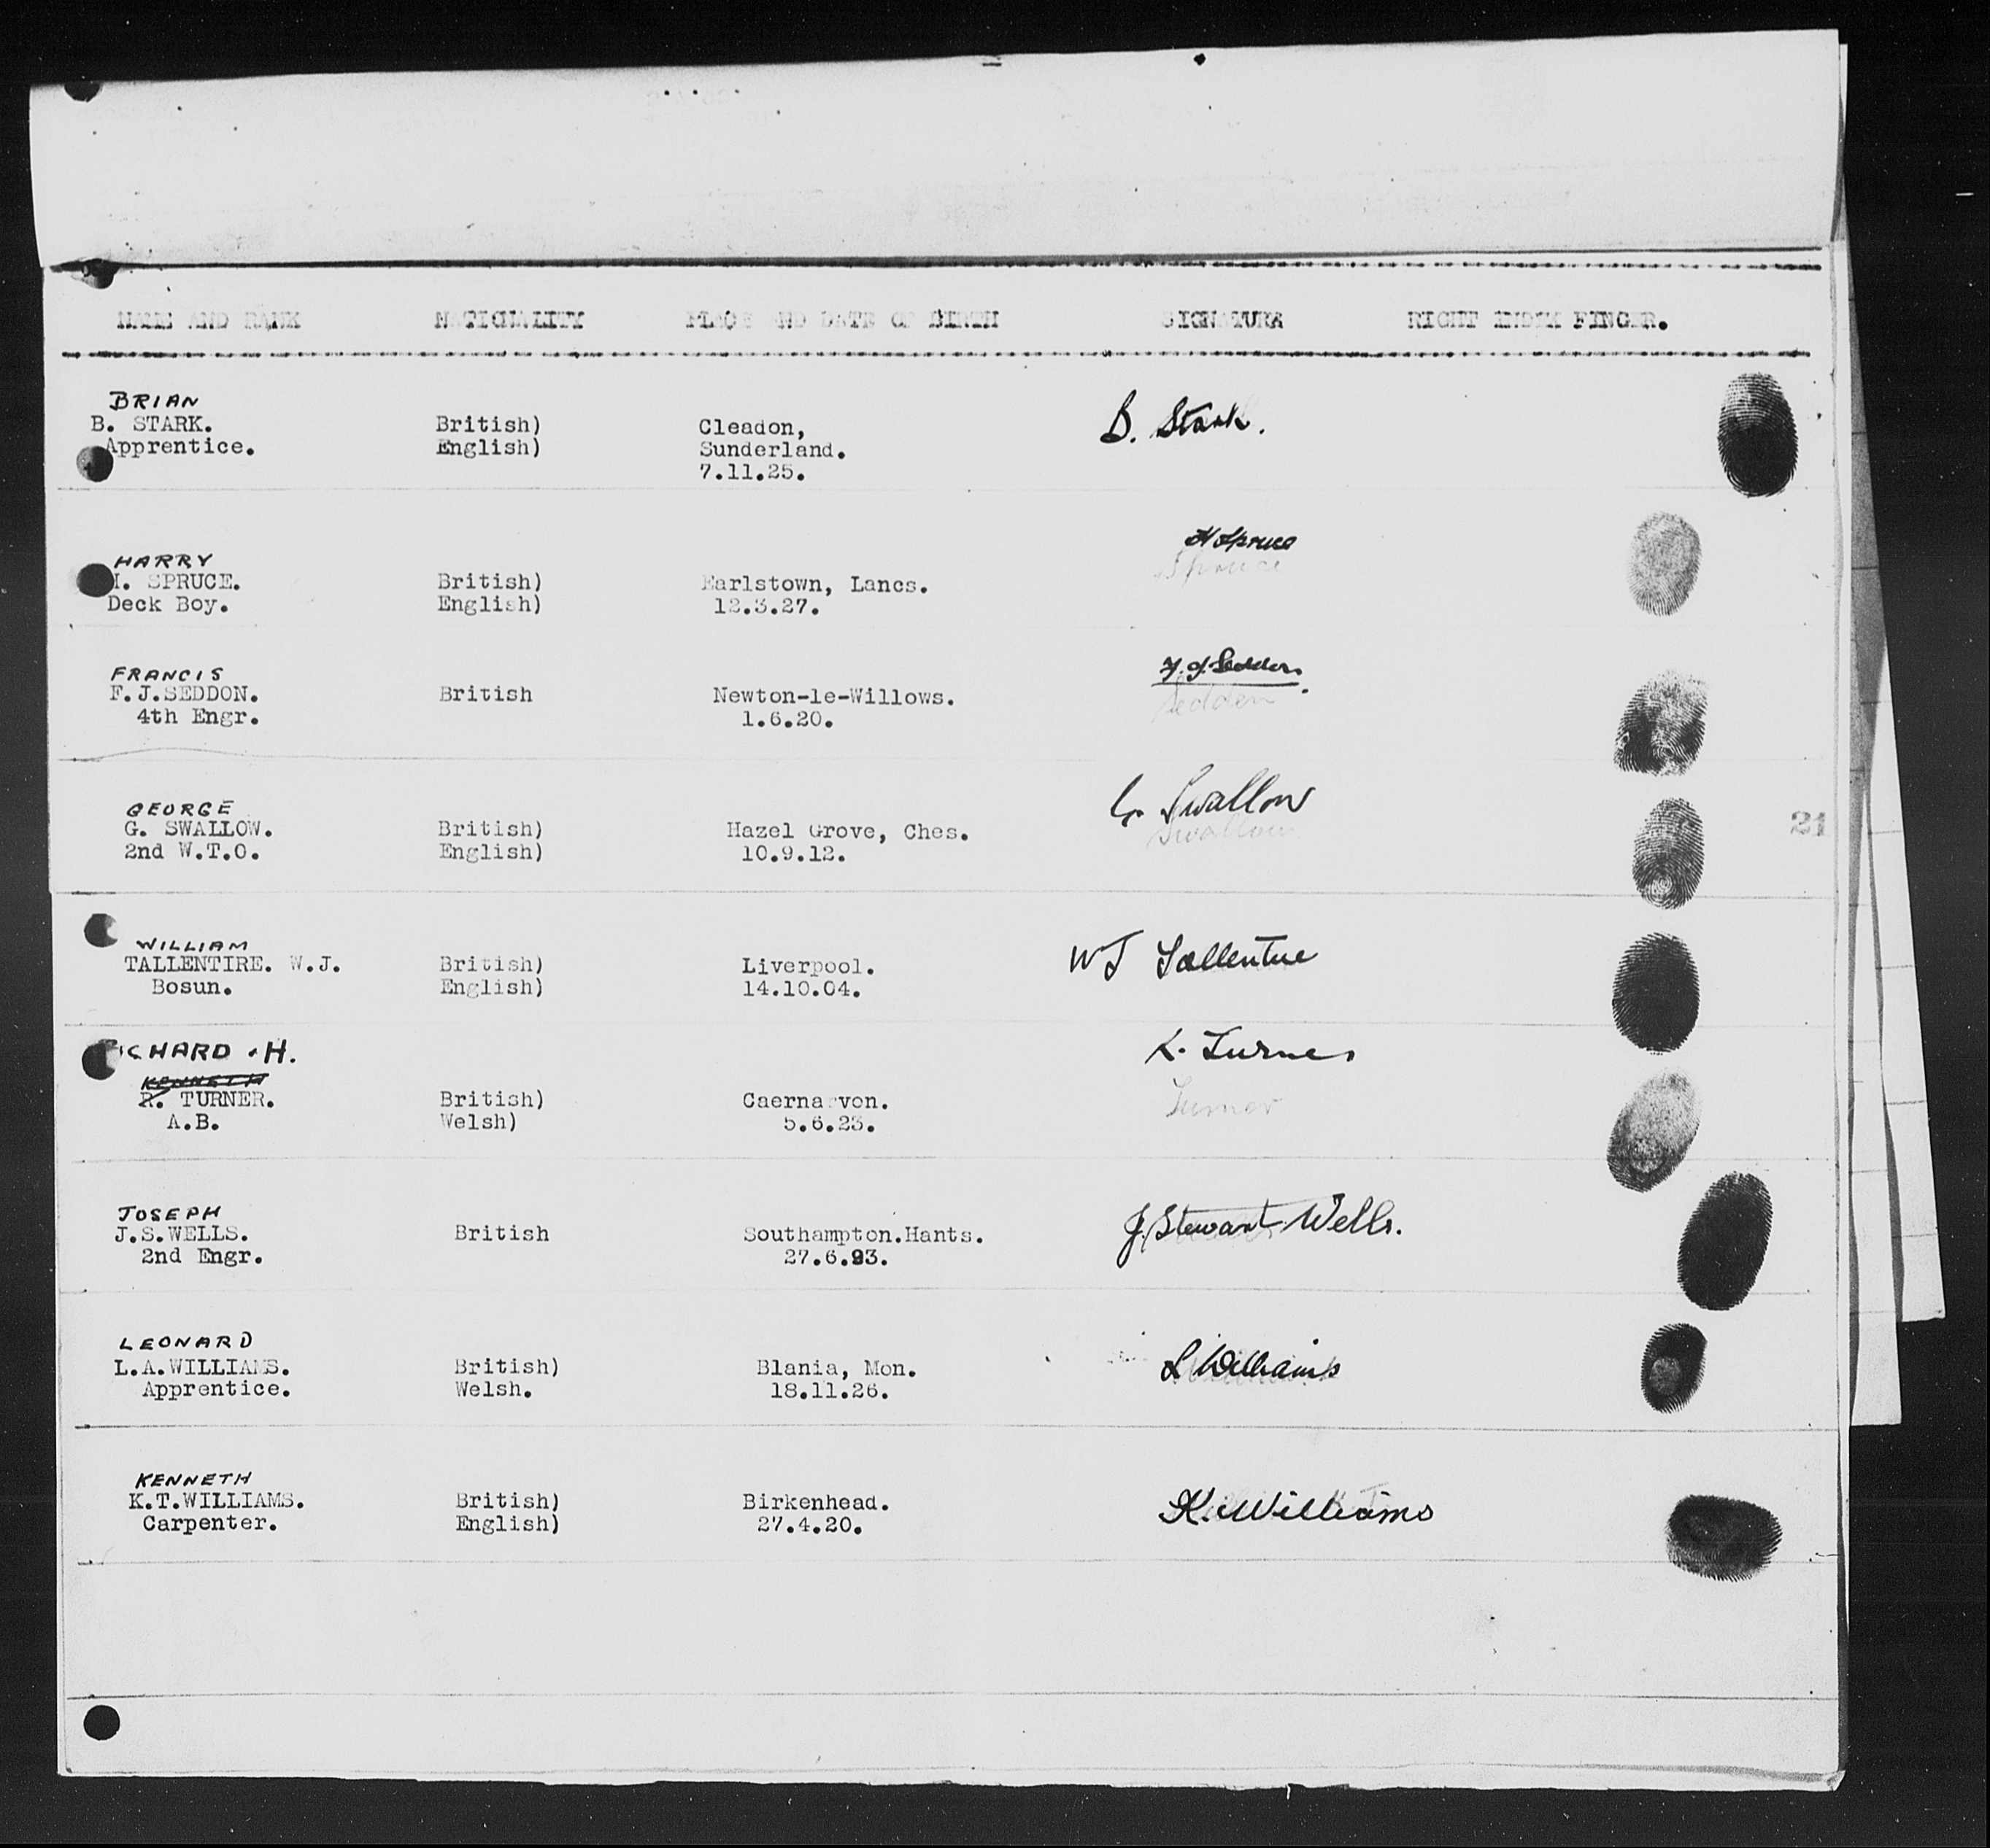 NAME AND RANK NATIONALITY PLACE AND DATE OF BIRTH SIGNATURE RIGHT INDEX FINGER.
BRIAN
B. STARK. British) Cleadon, B. Stark.
Apprentice. English) Sunderland.
7.11.25.
HARRY H Spruce
H. SPRUCE. British) Earlstown, Lancs. Spruce
Deck Boy. English) 12.3.27.
FRANCIS F. J. Seddon.
F.J.SEDDON. British Newton-le-Willows. Seddon
4th Engr. 1.6.20.
GEORGE G. Swallow
G. SWALLOW. British) Hazel Grove, Ches. Swallow
2nd W.T.O. English) 10.9.12.
21
WILLIAM
TALLENTIRE. W.J. British) Liverpool. WJ Tallentire
Bosun. English) 14.10.04.
RICHARD . H. R. Turner
KENNETH
R. TURNER. British) Caernarvon. Turner
A.B. Welsh) 5.6.23.
JOSEPH
J.S.WELLS. British Southampton.Hants. J. Stewart Wells.
2nd Engr. 27.6.93.
LEONARD
L.A.WILLIAMS. British) Blania, Mon. L Williams
Apprentice. Welsh. 18.11.26.
KENNETH
K.T.WILLIAMS. British) Birkenhead. K. Williams
Carpenter. English) 27.4.20.